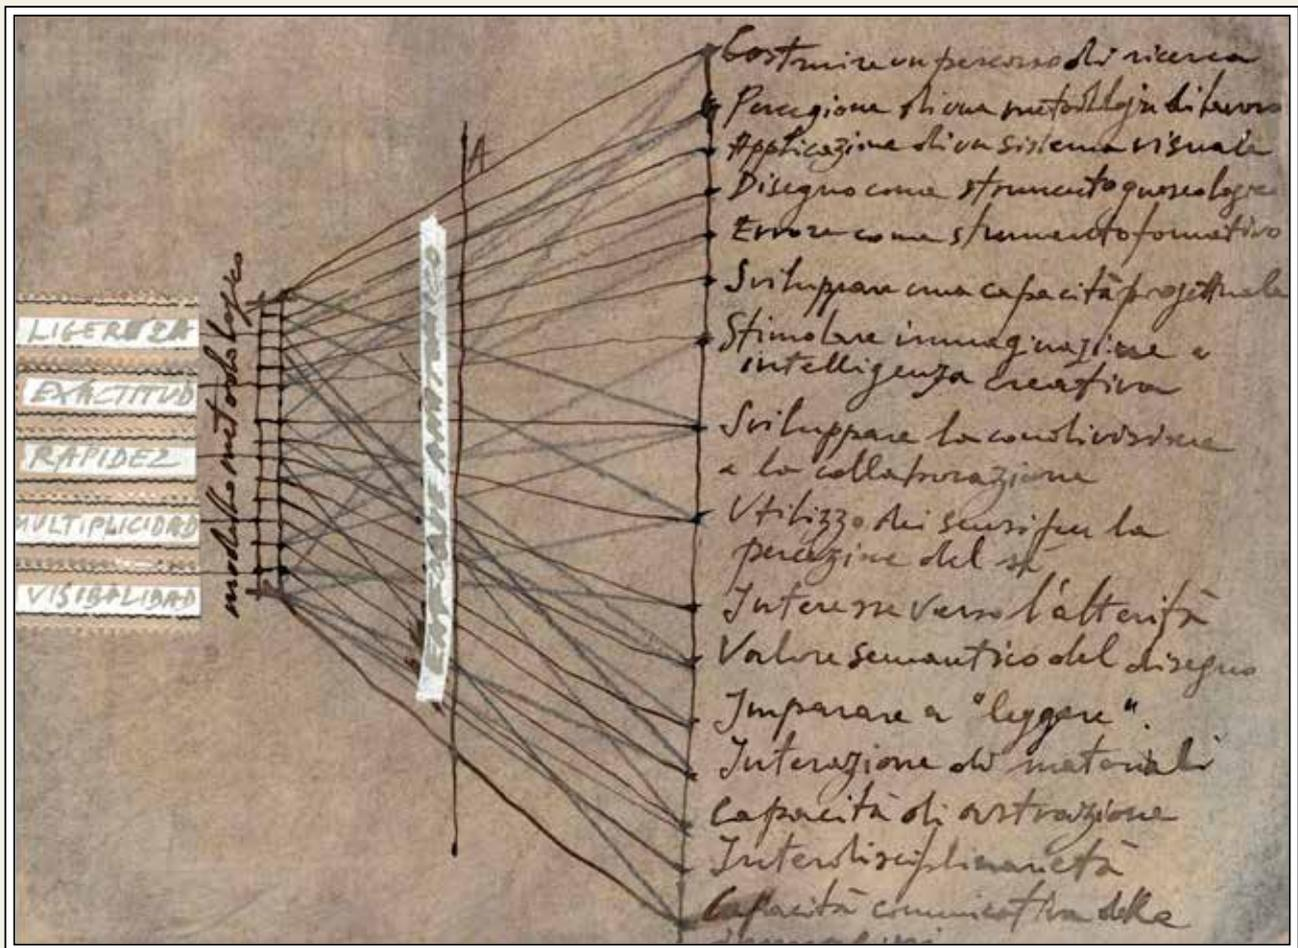 LIGEREZA
EXACTITUD
RAPIDEZ
MULTIPLICIDAD
VISIBALIDAD
modello metodologico
A
Costruire un percorso di ricerca
Percezione di una metodologia di lavoro
Applicazione di un sistema visuale
Disegno come strumento gnoseologico
Errore come strumento formativo
Sviluppare una capacità progettuale
Stimolare immaginazione e
intelligenza creativa
Sviluppare la condivisione
e la collaborazione
Utilizzo dei sensi per la
percezione del sé
Interesse verso l'alterità
Valore semantico del disegno
Imparare a "leggere".
Interazione di materiali
Capacità di astrazione
Interdisciplinarietà
Capacità comunicativa delle